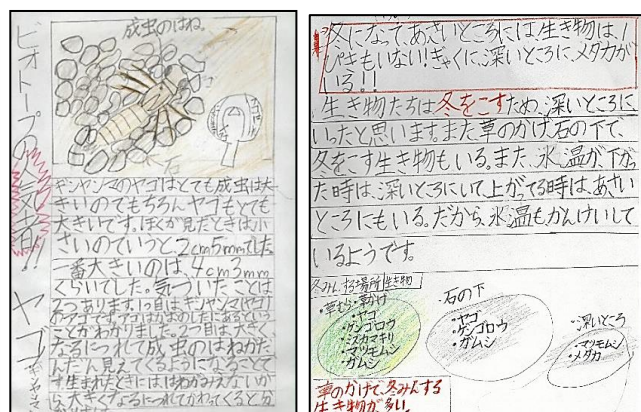 成虫のはね。
石
ビオトープの人気者!! ヤゴ
ギンヤンマのヤゴはとても成虫は大
きいのでもちろんヤゴもとても
大きいです。ぼくが見たときは小
さいのでいうと、2cm5mmでした。
一番大きいのは、4cm3mm
くらいでした。気づいたことは
2つあります。1つ目はギンヤンマ(ヤゴ)
ことがわかりました。2つ目は大きく
なるにつれて成虫のはねがだ
んだん見えてくるようになることで
す生まれたときにははねがみえないか
ら、大きくなるにつれてかわれてくると分
冬になって、あさいところには生き物は、1
ぴきもいない!ぎゃくに、深いところに、メダカが
いる!!
生き物たちは冬をこすため、深いところに
いったと思います。また草のかげ、石の下で、
冬をこす生き物もいる。また、水温が下がっ
た時は、深いところにいて上がてる時は、あさい
ところにもいる。だから、水温もかんけいして
いるようです。
冬みんする場所生き物
・草むら・草かげ
・ヤゴ
・ゲンゴロウ
・ミズカマキリ
・マツモムシ
・ガムシ
・石の下
・ヤゴ
・ゲンゴロウ
・ガムシ
・深いところ
・マツモムシ
・メダカ
草のかげで、冬みんする
生き物が多い。